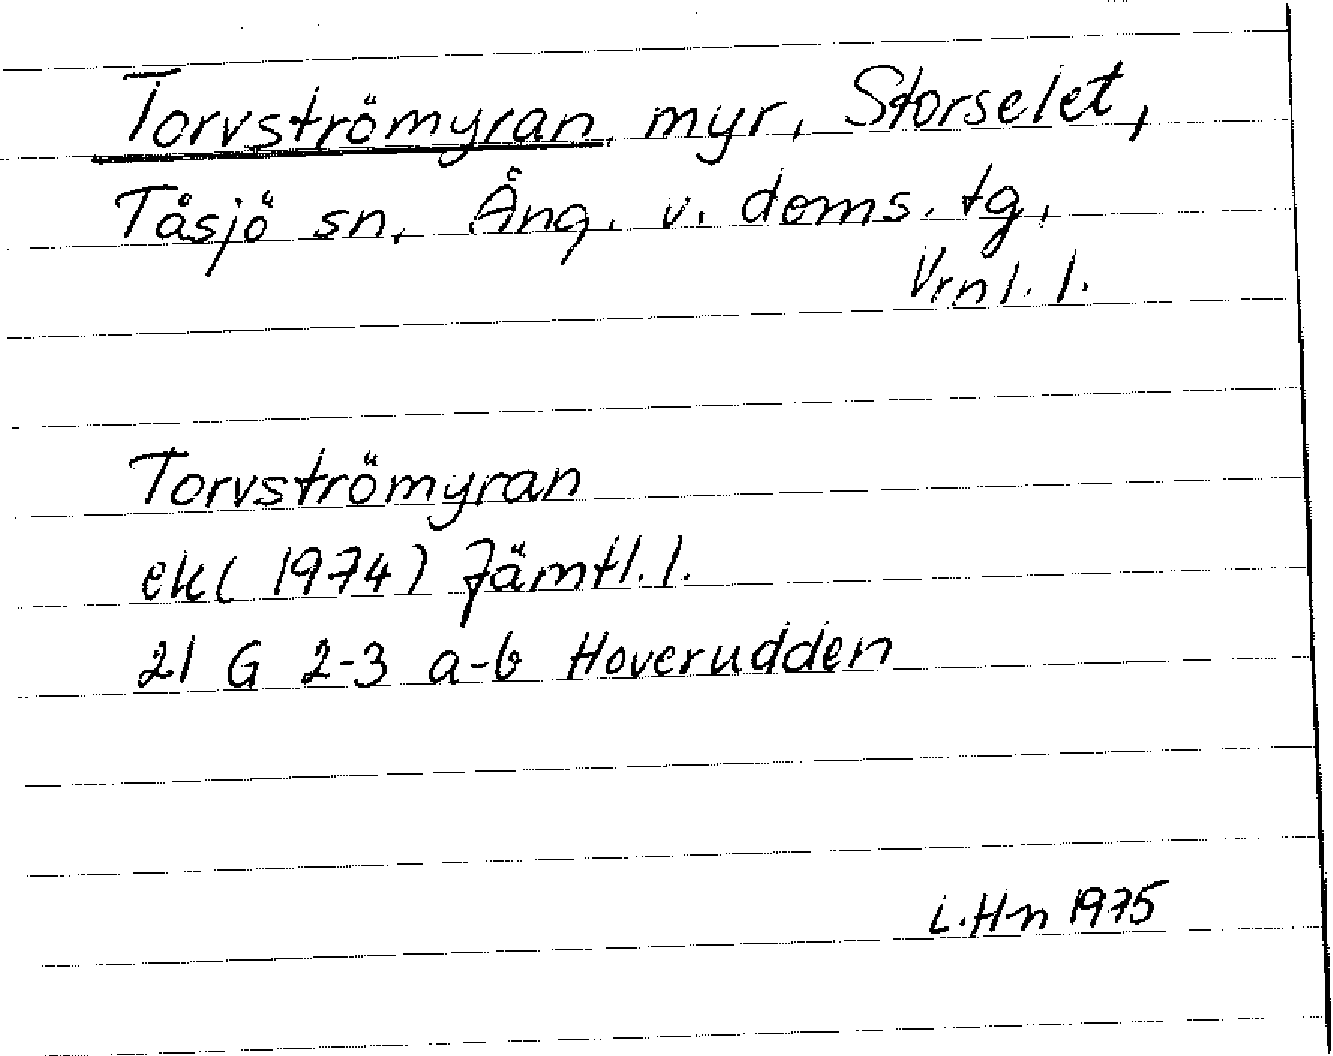 Torvströmyran myr, Storselet,
Tåsjö sn, Ång. v. doms. tg,
Vrnl. l.
Torvströmyran
ek( 1974) Jämtl. l.
21 G 2-3 a-b Hoverudden
L.Hn 1975